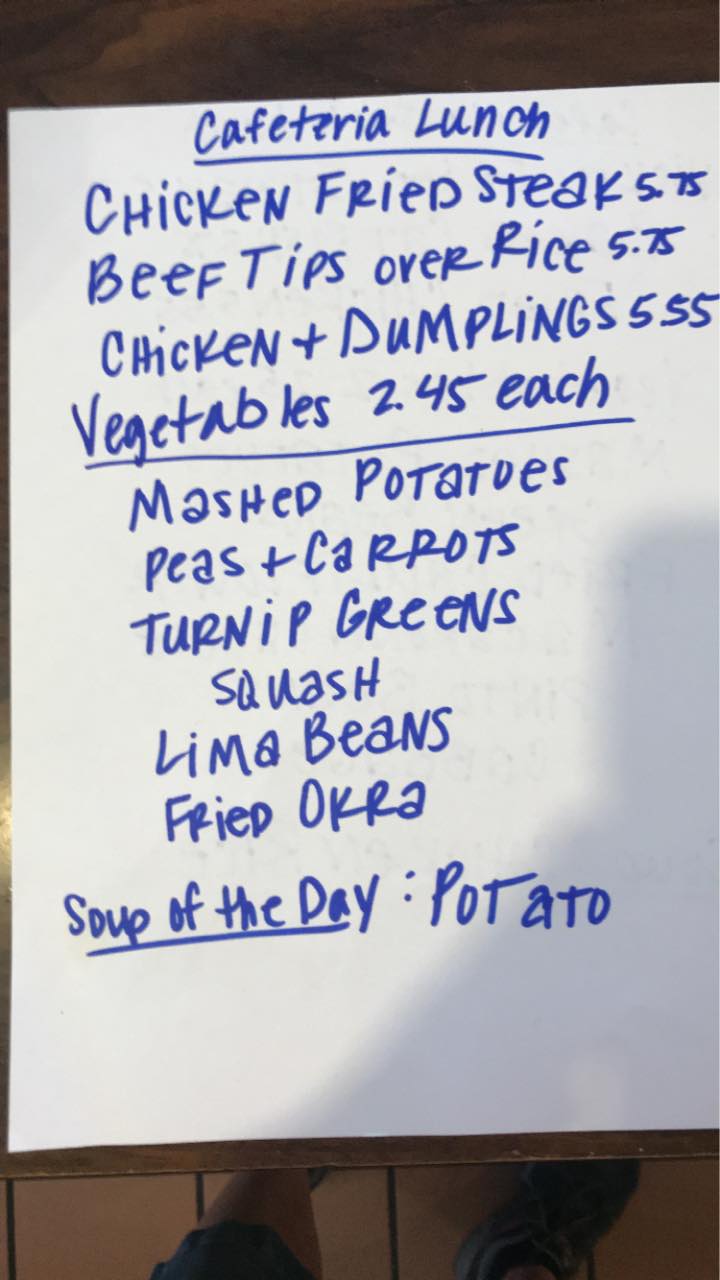 Cafeteria Lunch
CHICKEN FRIED STEAK 5.75
BEEF TIPS OVER RICE 5.75
CHICKEN + DUMPLINGS 5.55
Vegetables 2.45 each
MASHED POTATOES
PEAS + CARROTS
TURNIP GREENS
SQUASH
LIMA BEANS
FRIED OKRA
Soup of the Day : POTATO